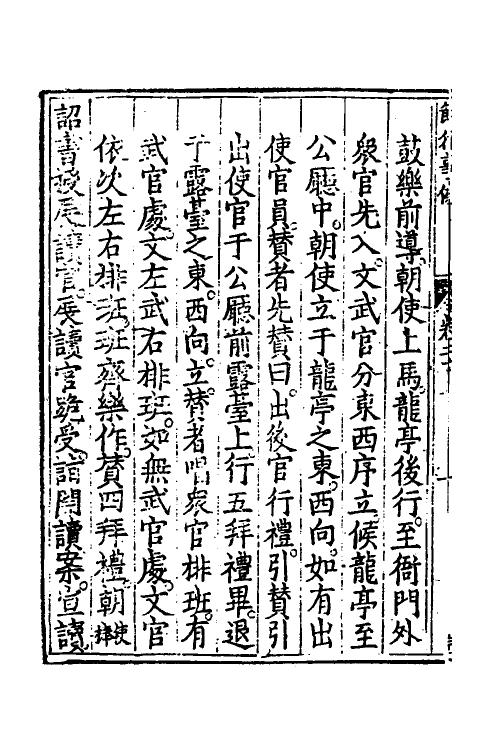 鼓樂前導朝使上馬龍亭後行。至衙門外
衆官先入。文武官分東西序立候龍亭至
公廳中。朝使立于龍亭之東。西向。如有出
使官員。贊者先贊曰。出後官行禮。引贊引
出使官于公廳前露臺上行五拜禮畢。退
于露臺之東。西向立。贊者唱衆官排班。有
武官處。文左武右排班。如無武官處。文官
依次左右排班。班齊樂作。贊四拜禮。朝使捧
詔書授展讀官。展讀官跪受。詣開讀案。宣讀